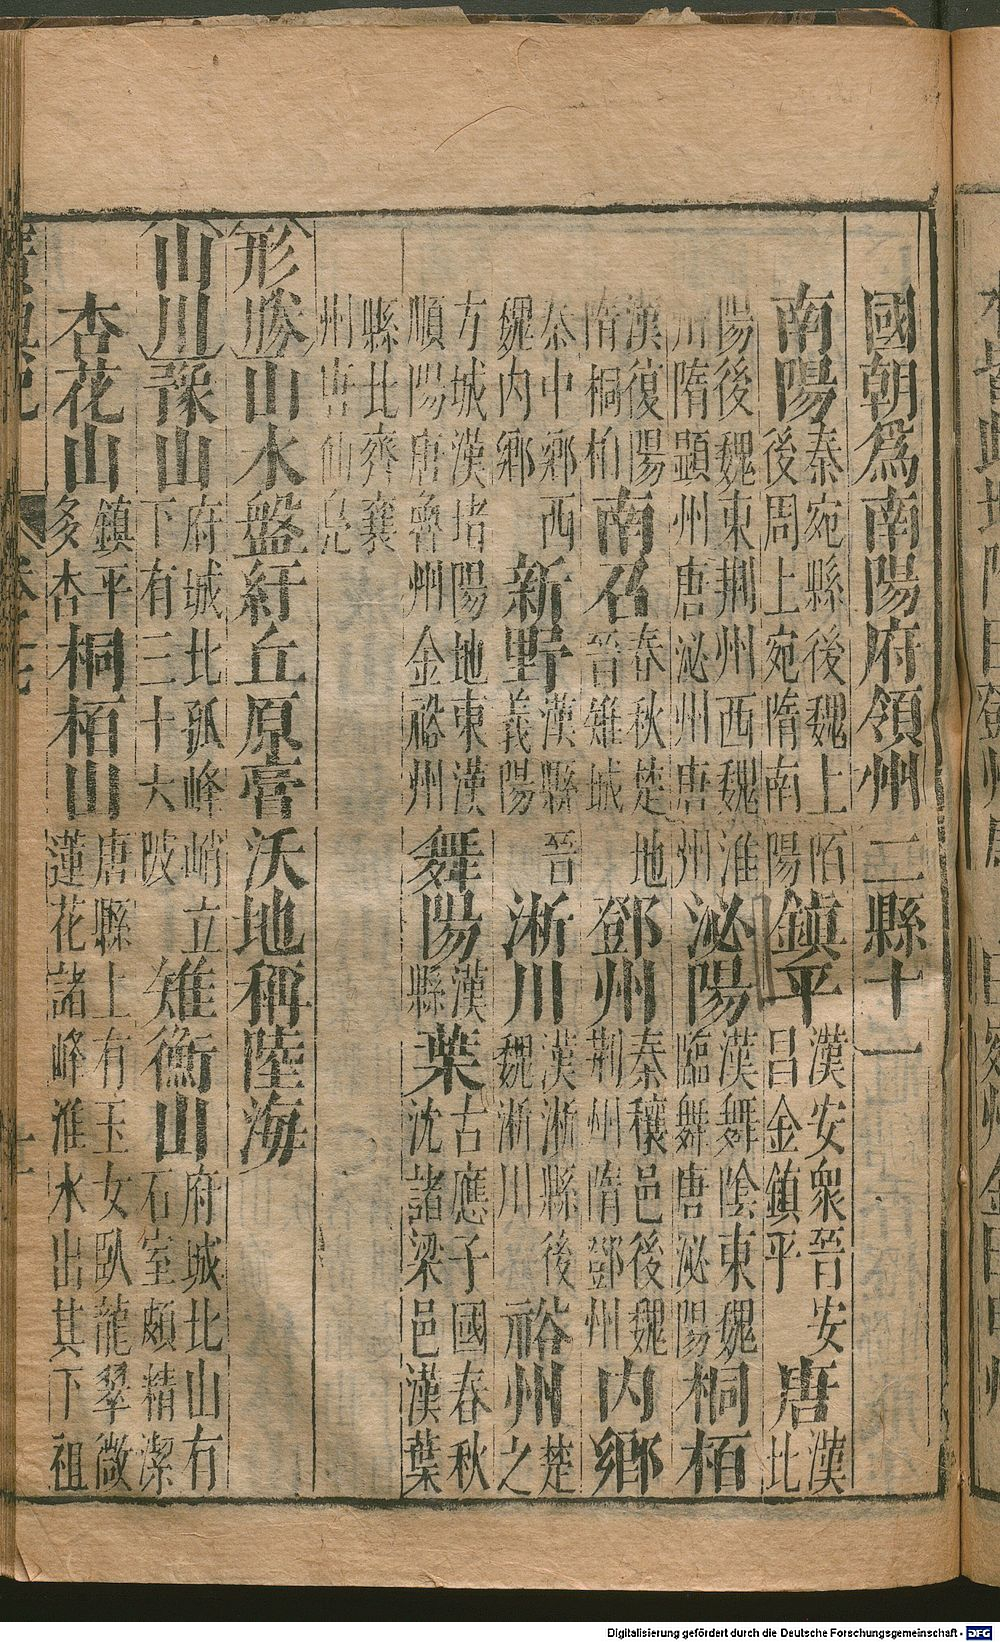 國朝爲南陽府領州二縣十一
南陽秦宛縣後魏上陌後周上宛隋南陽鎮平漢安衆晉安昌金鎮平唐漢比
陽後魏東荆州西魏淮州隋顯州唐泌州唐州泌陽漢舞陰東魏臨舞唐泌陽桐栢
漢復陽隋桐柏南召春秋楚地晉雉城鄧州秦穰邑後魏荆州隋鄧州内鄉
泰中鄉西魏内鄉新野漢縣晉義陽淅川漢淅縣後魏淅川裕州楚之
方城漢堵陽地東漢順陽唐魯州金裕州舞陽漢縣葉古應子國春秋沈諸梁邑漢葉
縣北齊襄州唐仙
形勝山水盤紆丘原膏沃地稱陸海
山川豫山府城北孤峰峭立下有三十大陂雉衡山府城北山有石室頗精潔
杏花山鎮平多杏桐栢山唐縣上有玉女臥龍翠微蓮花諸峰淮水出其下祖
Digitalisierung gefördert durch die Deutsche Forschungsgemeinschaft - DFG